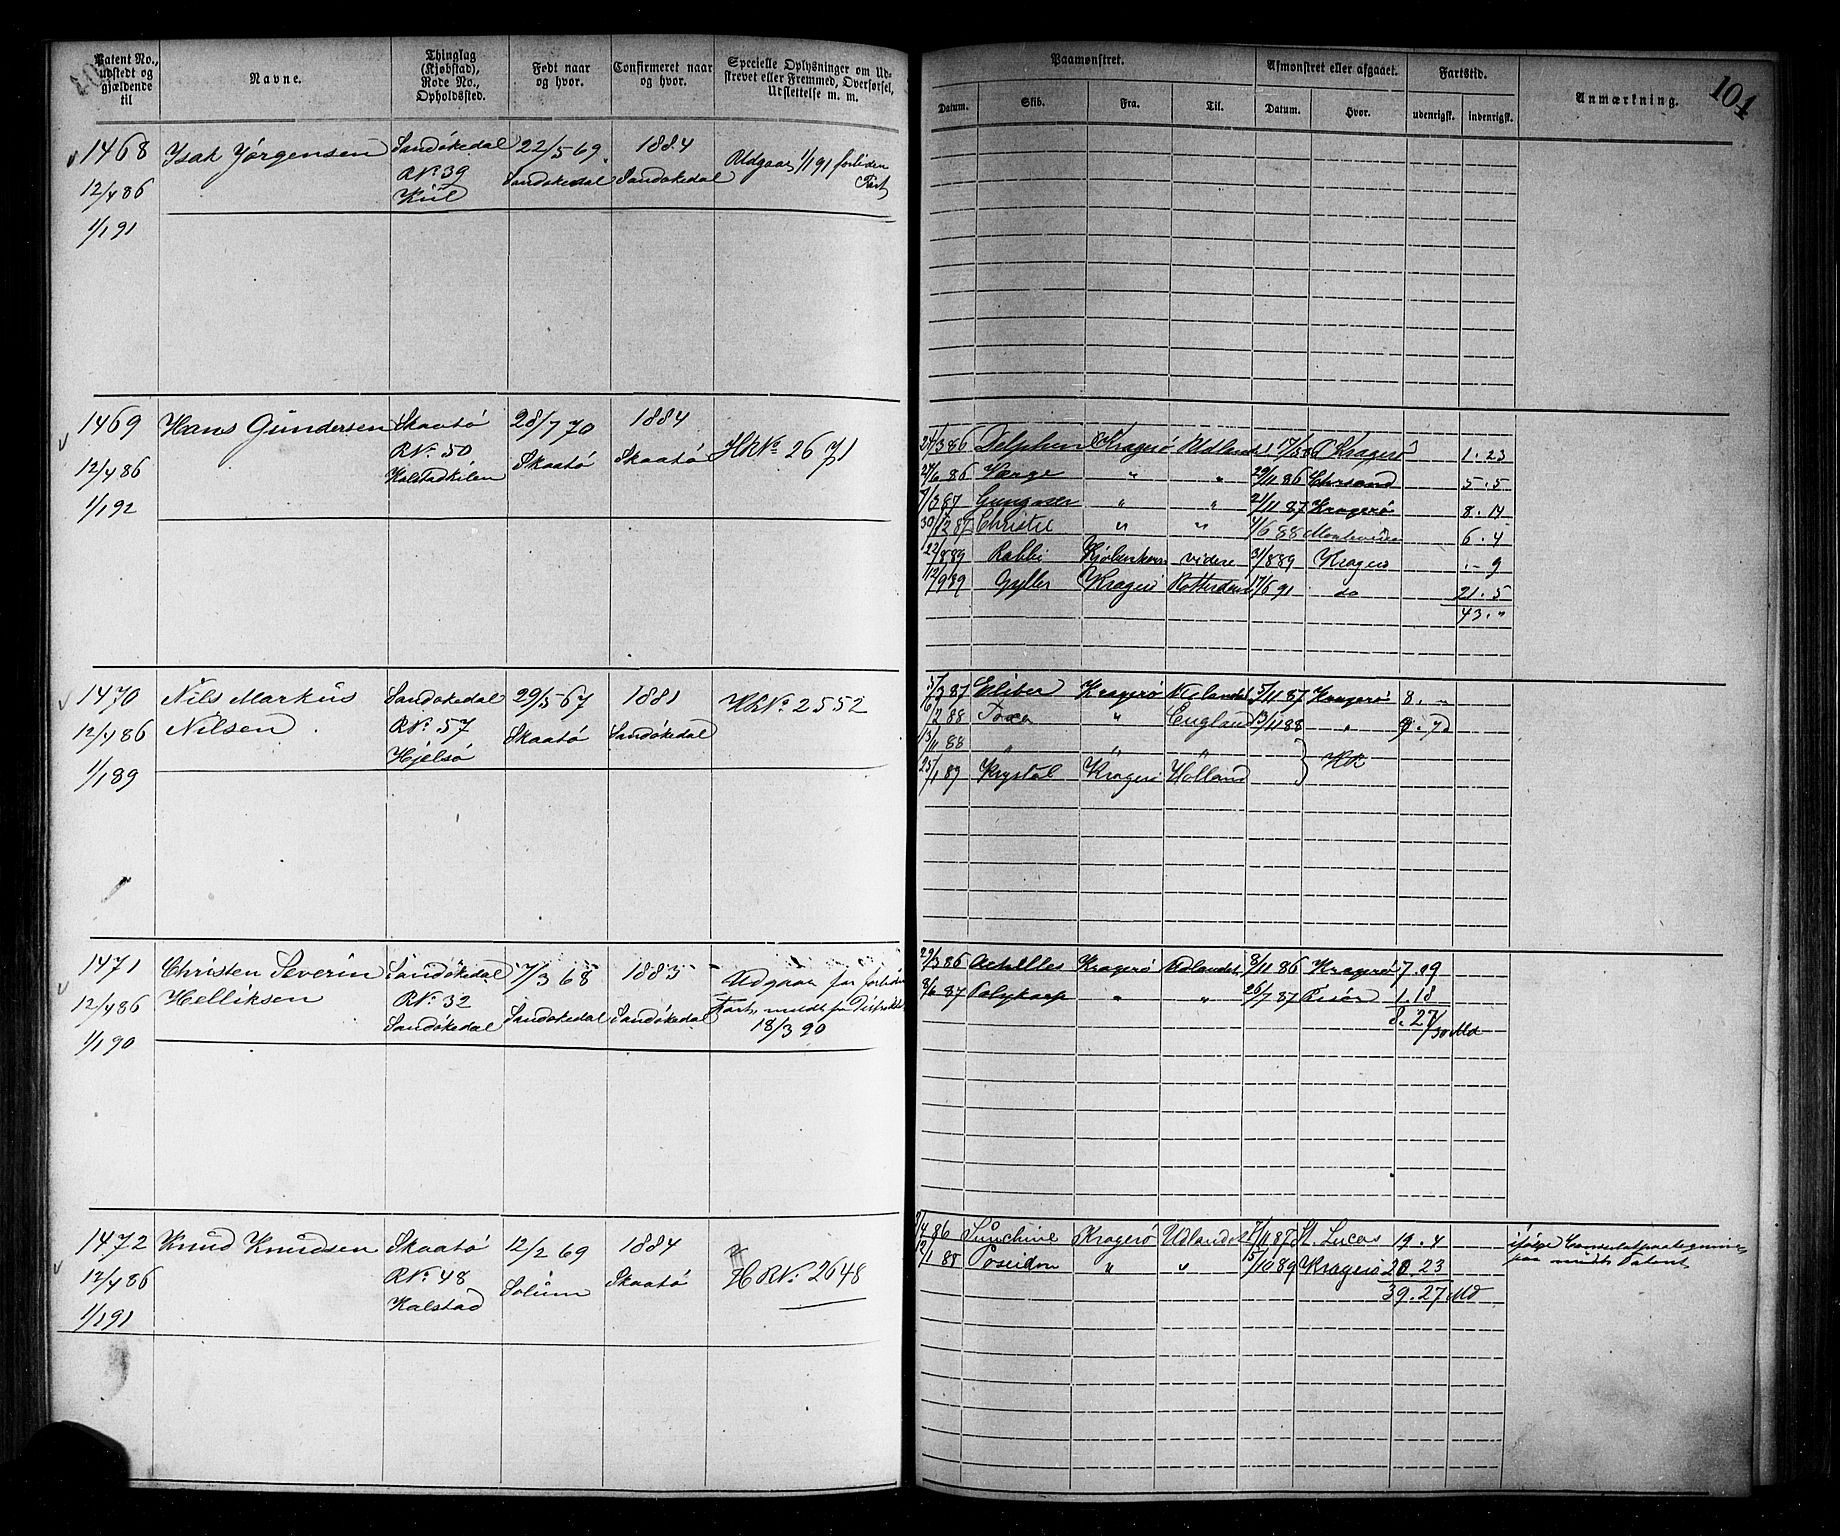 Patent No., udstedt og gjældende til
Navne.
Thinglag (Kjøbstad), Rode No., Opholdssted.
Født naar og hvor.
Confirmeret naar og hvor.
Specielle Oplysninger om Udskrevet eller Fremmed, Overførsel, Udslettelse m. m.
Paamønstret.
Afmønstret eller afgaaet.
Fartstid.
Anmærkning.
104
Datum. Skib. Fra. Til. Datum. Hvor. udenrigsk. indenrigsk.
1468 Isak Jørgensen Sandøkedal 22/5 69 1884 Udgaar 1/1 91 forliden
12/4 86 RN. 39 Sandøkedal Sandøkedal Fart
Kiil
1/1 91
1469 Hans Gundersen Skaatø 28/7 70 1884
12/4 86 RN. 50 Skaatø Skaatø HRN. 2671
Kalstadkilen
1/1 92
86 Delphin Kragerø Udlandet Kragerø 1. 23
27/6 86 Varge " " 29/11 86 Chrsand 5. 5
7/3 87 " " 21/11 87 Kragerø 8. 14
30/12 87 Christie " " 4/6 88 Montevideo 6. 4
22/8 89 Kjøbenhavn videre 31/8 89 Kragerø "- 9
12/9 89 Gyller Kragerø Rotterdam 17/6 91 do 21. 5
43. "
1470 Nils Markus Sandøkedal 29/5 67 1881 HRN. 2552
12/4 86 Nilsen RN. 57 Skaatø Sandøkedal
Hjelsø
1/1 89
87 Kragerø Udlandet 5/11 87 Kragerø 8. "
16/2 88 England 13/11 88 "
13/11 88 " " "
25/1 89 Krystal Kragerø Holland HR
1471 Christen Severin Sandøkedal 7/3 68 1883 Udgaar for forliden
12/4 86 Helliksen RN. 32 Sandøkedal Sandøkedal Fart,
Sandøkedal 18/3 90
1/1 90
29/3 86 Achilles Kragerø Udlandet 8/11 86 Kragerø 7. 9
8/6 87 Polykarp " " 26/7 87 Risør 1. 18
8. 27/30 Md
1472 Knud Knudsen Skaatø 12/2 69 1884
12/4 86 RN. 48 Solum Skaatø HRN. 2648
Kalstad
1/1 91
86 Sunchine Kragerø Udlandet St. Lucas 19. 4
12/1 88 Poseidon " " 5/10 89 Kragerø 20. 23
39. 27 Md
ifølge Consulatpaategning
paa Patent